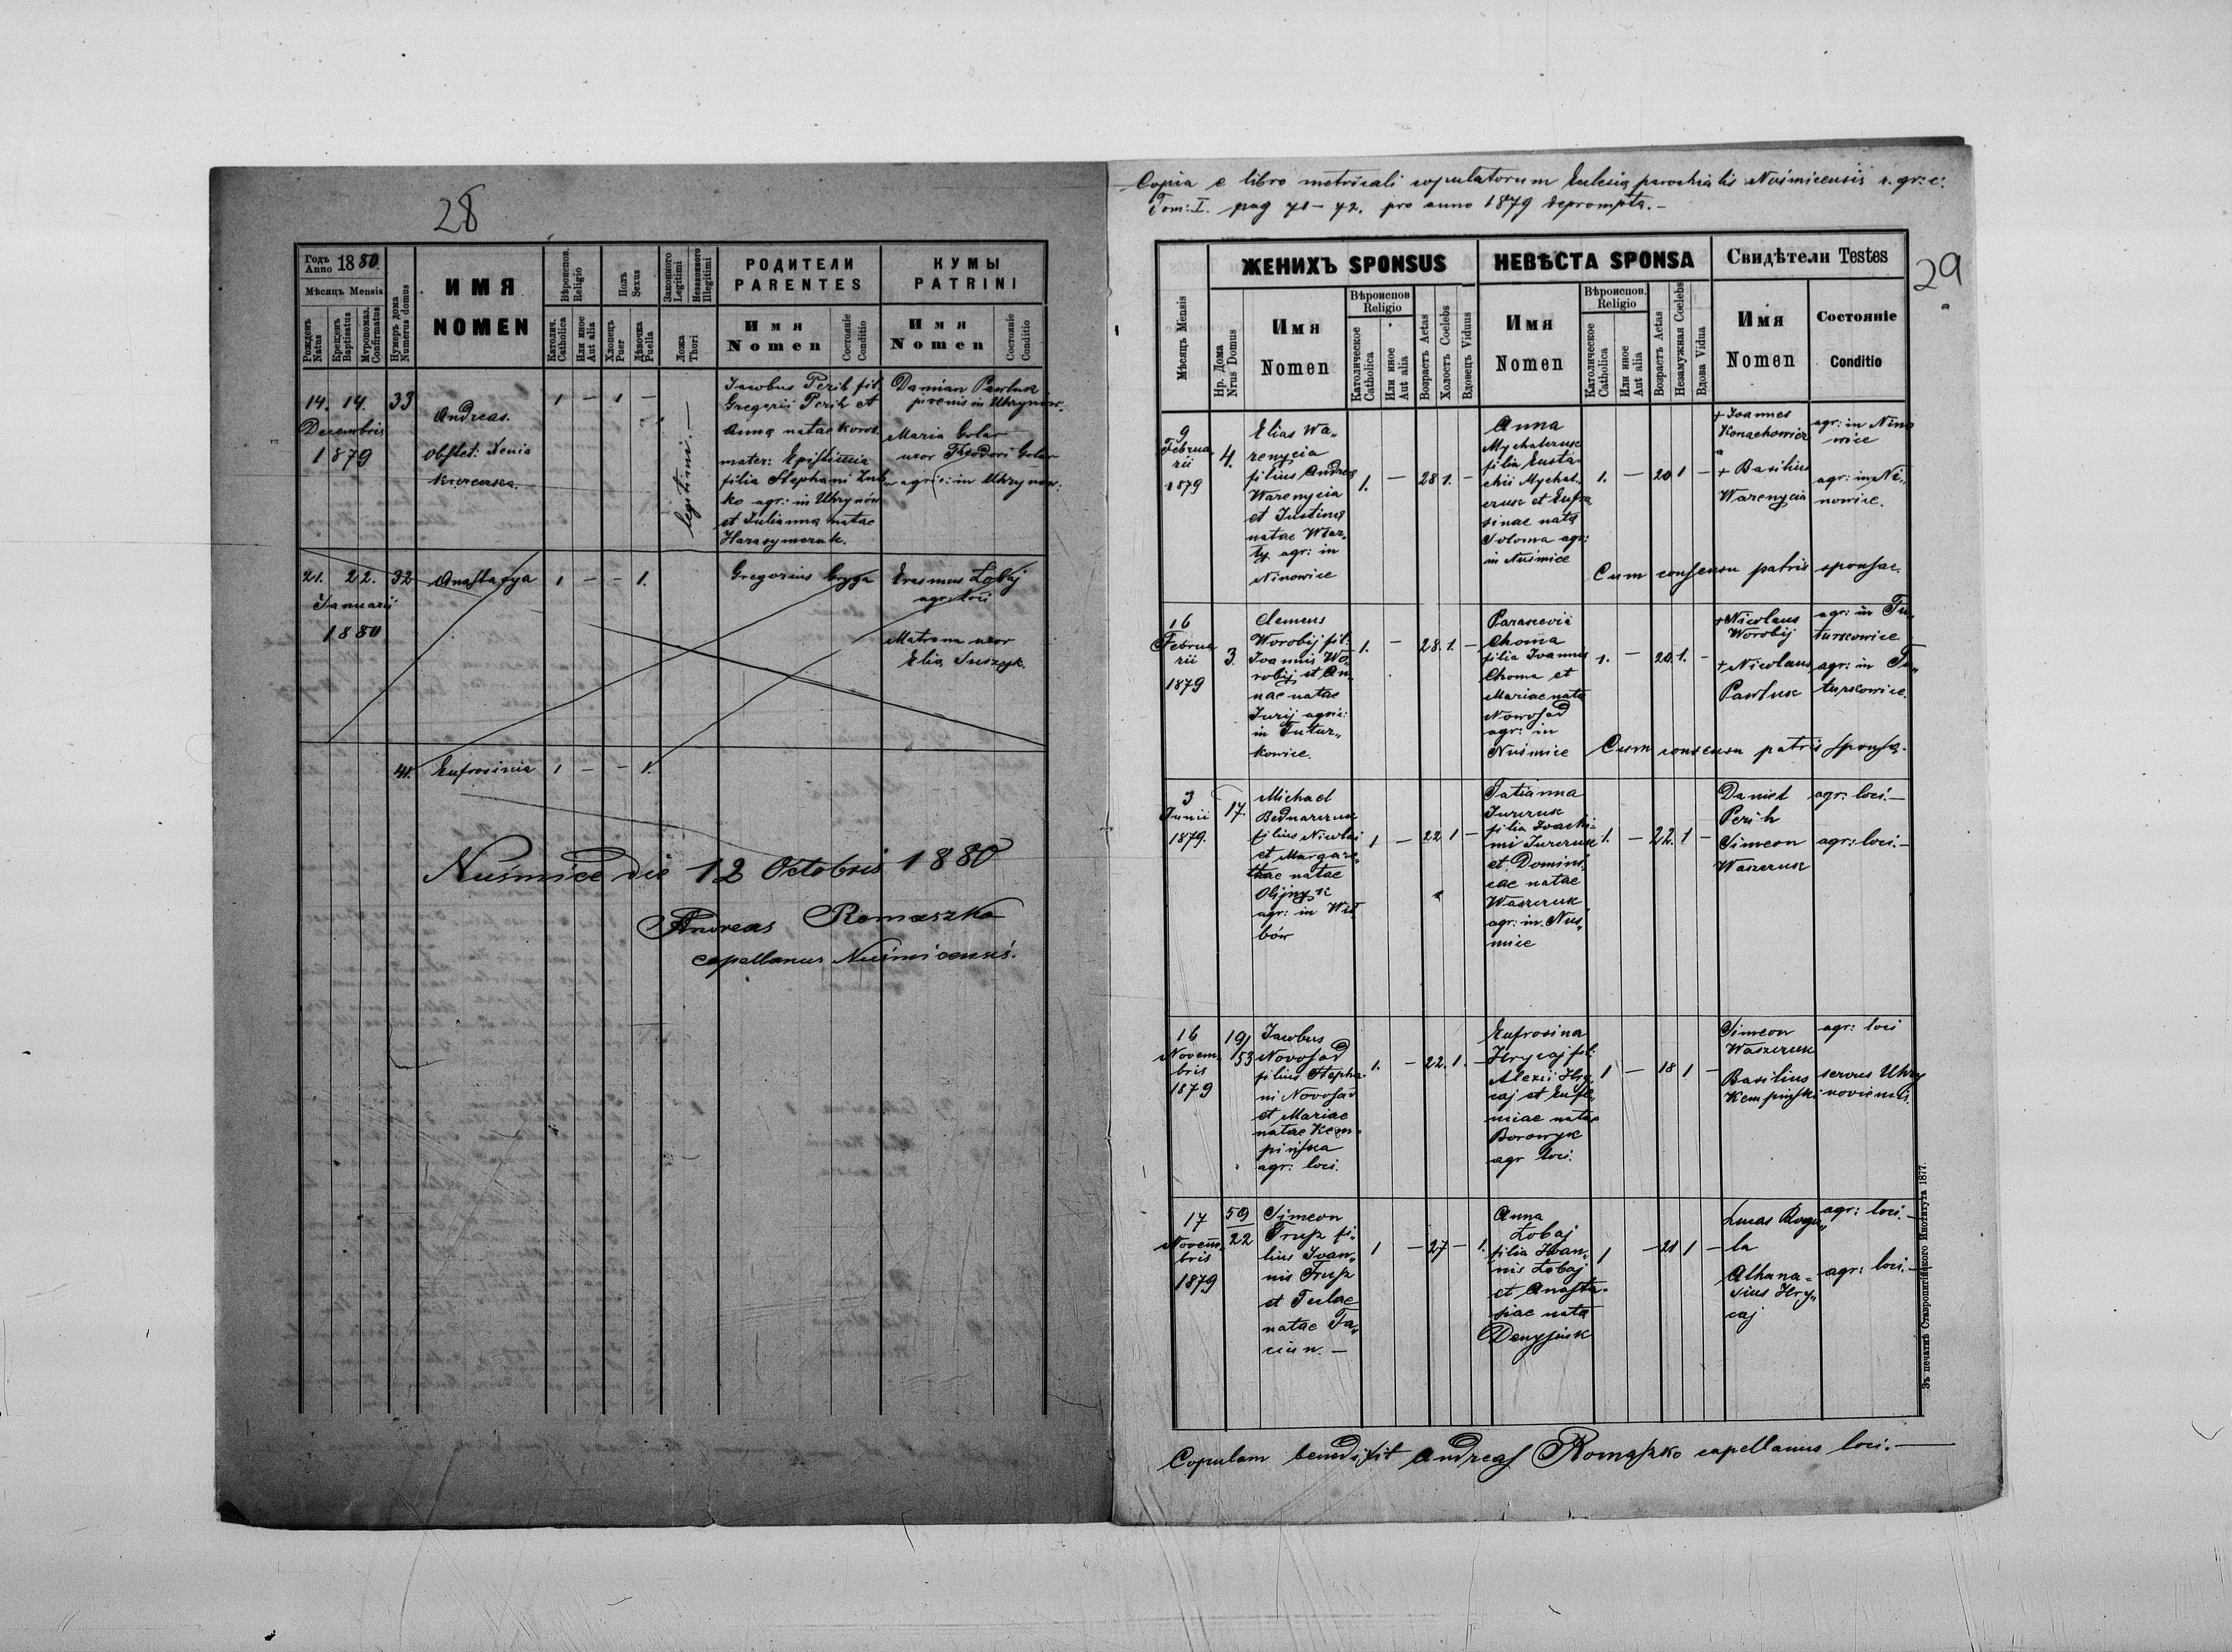 28
Годъ Anno 1880.
Мѣсяцъ Mensis
Рожденъ Natus
Крещенъ Baptisatus
Мѵропомаз. Confirmatus
Нумеръ дома Numerus domus
ИМЯ
NOMEN
Вѣроиспов. Religio
Католич. Catholica
Или иное Aut alia
Полъ Sexus
Хлопецъ Puer
Дѣвочка Puella
Законного Legitimi
Незаконного Illegitimi
Ложа Thori
РОДИТЕЛИ
PARENTES
Имя
Nomen
Состоянiе Conditio
КУМЫ
PATRINI
Имя
Nomen
Состоянiе Conditio
14. 14. 33
Decembris
1879
Andreas.
obstet: Xenia
1 – 1 –
legitimi. –
Jacobus Perih fil.
Gregorii Perih et
Anna natae Korol.
mater: Epistimia
filia Stephani
ko agr: in Uhrynów
et Julianna natae
Harasymczuk.
Damian Pawluk
juvenis in Uhrynów.
Maria Golar
uxor Theodori Golar
agric: in Uhrynów.
21. 22. 32
Januarii
1880
Anastazya
1 – – 1.
Gregorius Gryga
Erasmus Łobaj
agr: loci
Matrona uxor
Elia Suszyk.
41. Eufrosinia 1 – – 1.
Nuśmice die 12 Octobris 1880
Andreas Romaszko
capellanus Nuśmicensis.
Copia e libro metricali copulatorum Ecclesiæ parochialis Nuśmicensis r. gr: c:
Tom: I. pag 71–72. pro anno 1879 deprompta. –
29
Мѣсяцъ Mensis
ЖЕНИХЪ SPONSUS
Нр. Дома Nrus Domus
Имя
Nomen
Вѣроиспов Religio
Католическое Catholica
Или иное Aut alia
Возрастъ Aetas
Холостъ Coelebs
Вдовецъ Viduus
НЕВѢСТА SPONSA
Имя
Nomen
Вѣроиспов. Religio
Католическое Catholica
Или иное Aut alia
Возрастъ Aetas
Незамужная Coelebs
Вдова Vidua
Свидѣтели Testes
Имя
Nomen
Состоянiе
Conditio
9
Februa
rii
1879
4.
Elias Wa„
renycia
filius Andreæ
Warenycia
et Justina
natae War„
ty agr: in
Ninowice
1. – 28 1. –
Anna
Mychalczuk
filia Eusta
chii Mychal„
czuk et Eufro
sinae nata
Soloma agr:
in Nuśmice
1. – 20 1 –
+ Joannes
Konachowicz
+ Basilius
Warenycia
agr: in Nino
wice
agr: in Ni„
nowice.
Cum consensu patris sponsae.
16
Februa
rii
1879
3.
Clemens
Worobij fil:
Joannis Wo„
robij et An„
nae natae
Jurij agric:
in Tutur„
kowice.
1. – 28. 1. –
Parascevia
Choma
filia Joannis
Choma et
Mariae nata
Nowosad
agr: in
Nuśmice
1. – 20. 1. –
+ Nicolaus
Worobij
+ Nicolaus
Pawluk
agr: in Tu„
turkowice
agr: in Tu„
turkowice.
Cum consensu patris sponsæ.
3
Junii
1879.
17.
Michael
Bednarczuk
filius Nicolai
et Margare„
thae natae
Olijnyk
agr: in Wił
bów
1 – 22 1 –
Tatianna
Jurczuk
filia Joachi„
mi Jurczuk
et Domini„
cae natae
Waszczuk
agr: in Nuś„
mice
1. – 22. 1 –
Daniel
Perih
Simeon
Waszczuk
agr: loci. –
agr: loci. –
16
Novem
bris
1879
19/53
Jacobus
Novosad
filius Stepha
ni Novosad
et Mariae
natae Kem„
pińska
agr: loci.
1. – 22. 1. –
Eufrosina
Hrycaj fil:
Alexii Hry„
caj et Eufe„
miae natae
Borowyk
agr loci.
1 – 18 1 –
Simeon
Waszczuk
Basilius
Kempiński
agr: loci
servus Uhry
noviensis.
17
Novem
bris
1879
59
22
Simeon
Trusz fi„
lius Joan„
nis Trusz
et Teclae
natae Ta„
ciun. –
1 – 27 – 1.
Anna
Łobaj
filia Joan„
nis Łobaj
et Anasta„
siae nata
Denysiuk
1 – 21 1 –
Lucas Rogu„
la
Athana„
sius Hry„
caj
agr: loci. –
agr: loci. –
Зъ печатнѣ Ставропигiйского Института 1877.
Copulam benedixit Andreas Romaszko capellanus loci. –